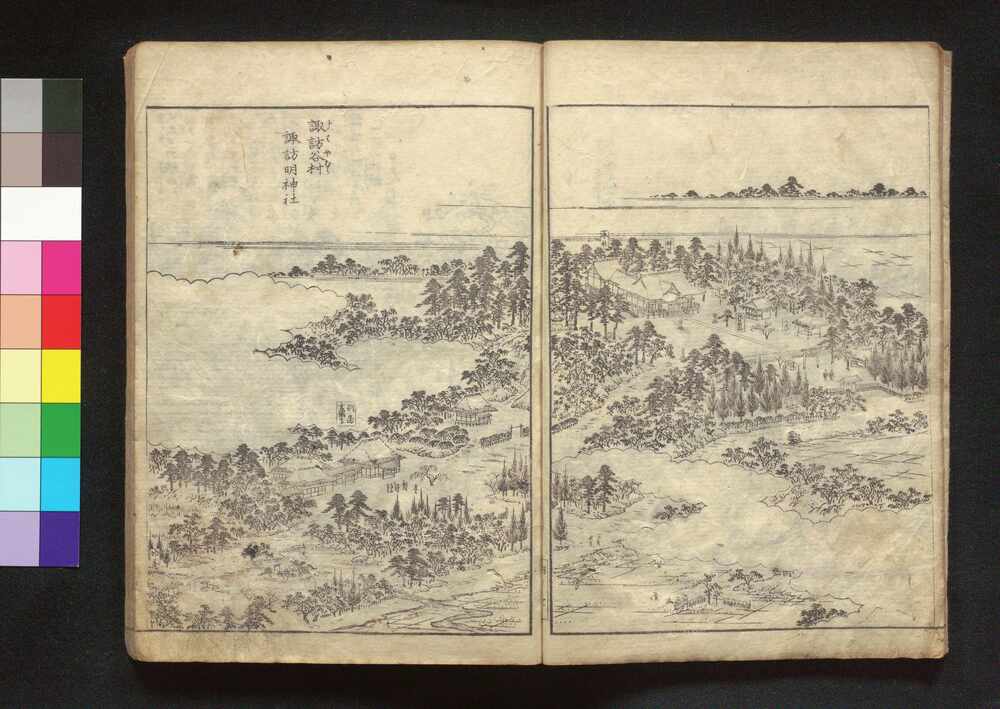 諏訪谷村
諏訪明神社